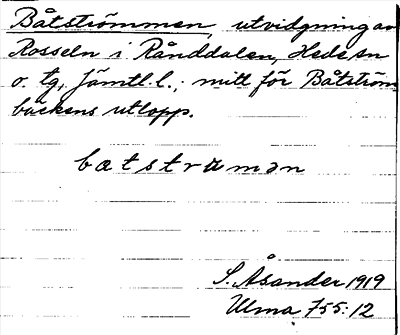 Båtströmmen, utvidgning av
Rosseln i Rånddalen, Hede sn
o. tg, Jämtl. l.; mitt för Båtström-
bäckens utlopp.
bætstrɯmən
S. Åsander 1919
Ulma 755:12